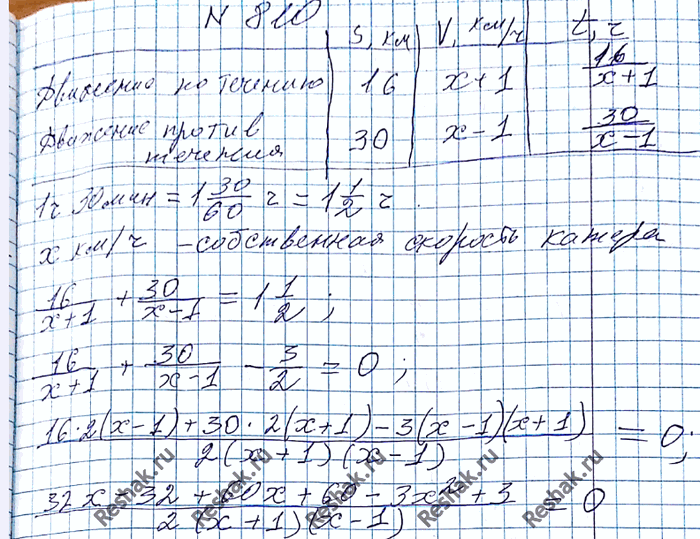 N 810
S, км V, км/ч t, ч
Движение по течению 16 x+1 16/(x+1)
Движение против течения 30 x-1 30/(x-1)
1ч 30мин = 1 30/60 ч = 1 1/2 ч.
x км/ч - собственная скорость катера
16/(x+1) + 30/(x-1) = 1 1/2;
16/(x+1) + 30/(x-1) - 3/2 = 0;
(16·2(x-1)+30·2(x+1)-3(x-1)(x+1))/(2(x+1)(x-1)) = 0;
(32x-32+60x+60-3x²+3)/(2(x+1)(x-1)) = 0
Reshak.ru Reshak.ru Reshak.ru Reshak.ru